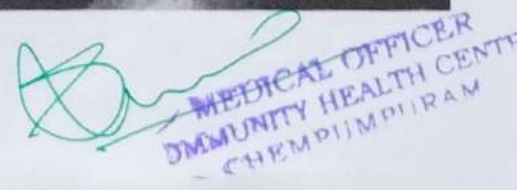 MEDICAL OFFICER
OMMUNITY HEALTH CENTR
CHEMPUMPURAM